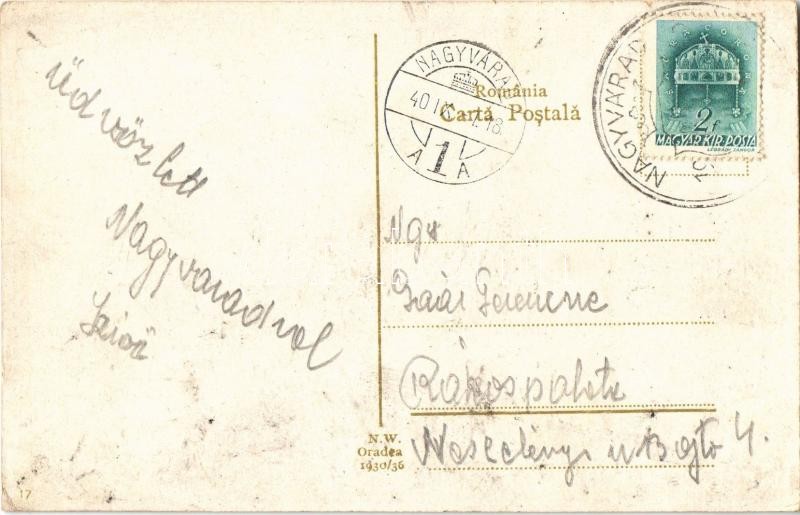 üdvözlett
Nagyvaradrol
NAGYVÁRAD
40 IX
18
A 1 A
România
Carta Poștală
NAGYVÁRAD
2f
MAGYAR KIR. POSTA
LÉGRÁDY SÁNDOR
Ngs
Gaár Ferencne
Rákospalota
Wesselényi u
4.
N.W.
Oradea
1930/36
17